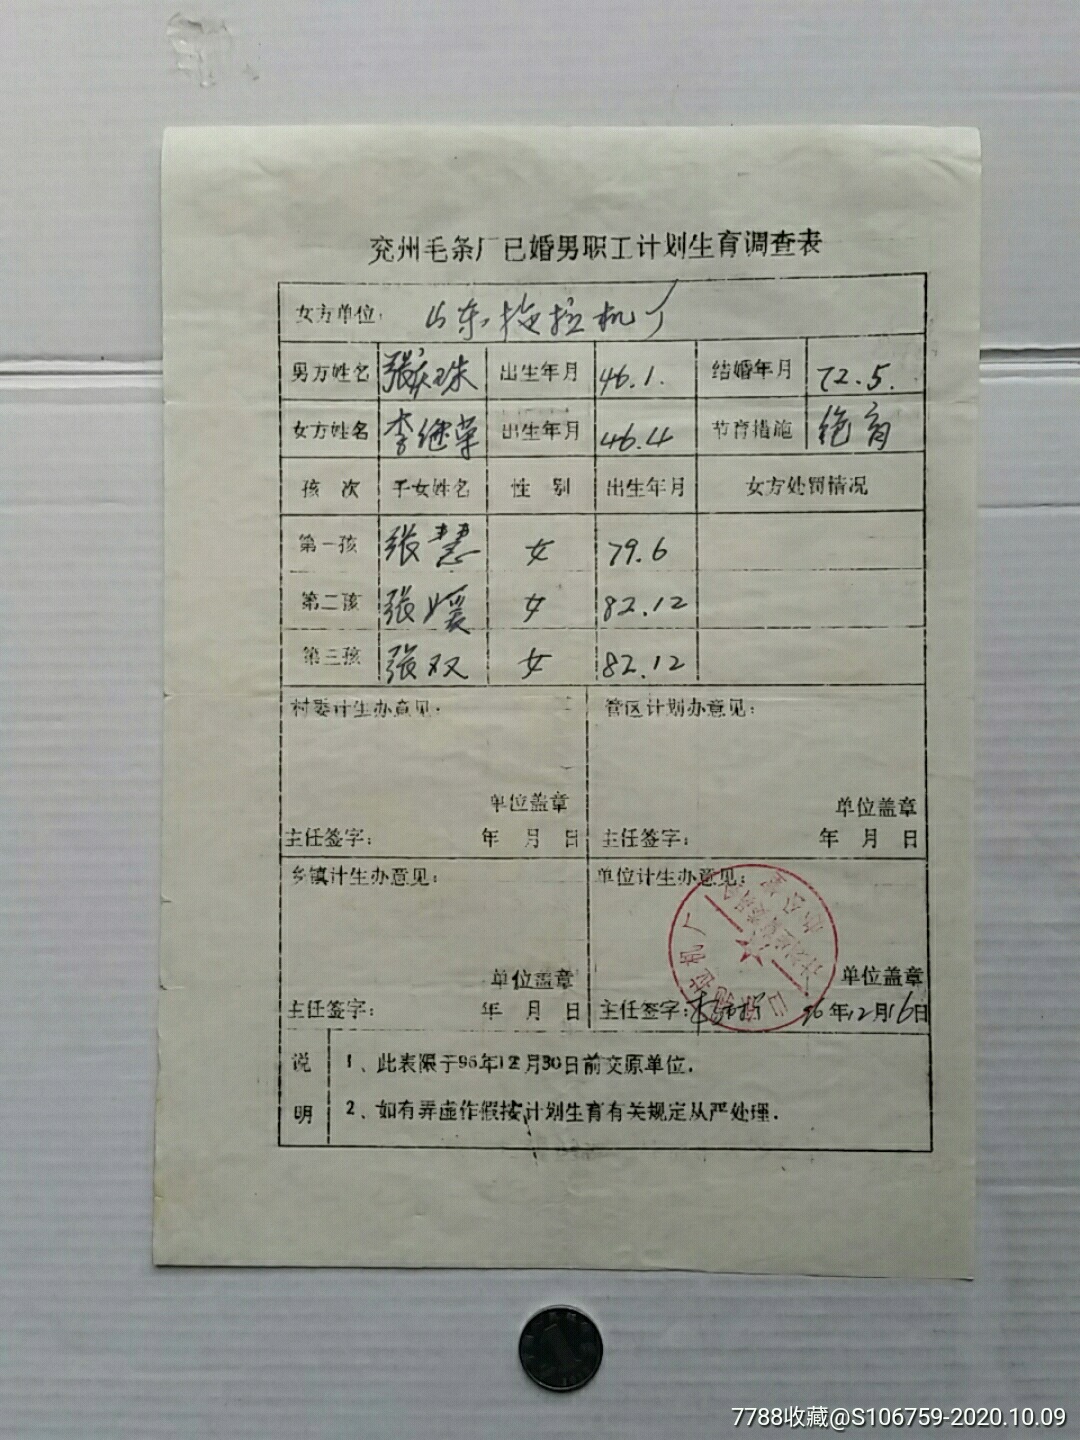 兖州毛条厂已婚男职工计划生育调查表
女方单位： 山东拖拉机厂
男方姓名 张庆珠 出生年月 46.1. 结婚年月 72.5.
女方姓名 李继荣 出生年月 46.4 节育措施 绝育
孩次 子女姓名 性别 出生年月 女方处罚情况
第一孩 张慧 女 79.6
第二孩 张媛 女 82.12
第三孩 张双 女 82.12
村委计生办意见： 管区计划办意见：
单位盖章 单位盖章
主任签字： 年 月 日 主任签字： 年 月 日
乡镇计生办意见： 单位计生办意见：
单位盖章 单位盖章
主任签字： 年 月 日 主任签字： 96年12月16日
说明
1、此表限于96年12月30日前交原单位．
2、如有弄虚作假按计划生育有关规定从严处理．
7788收藏@S106759-2020.10.09